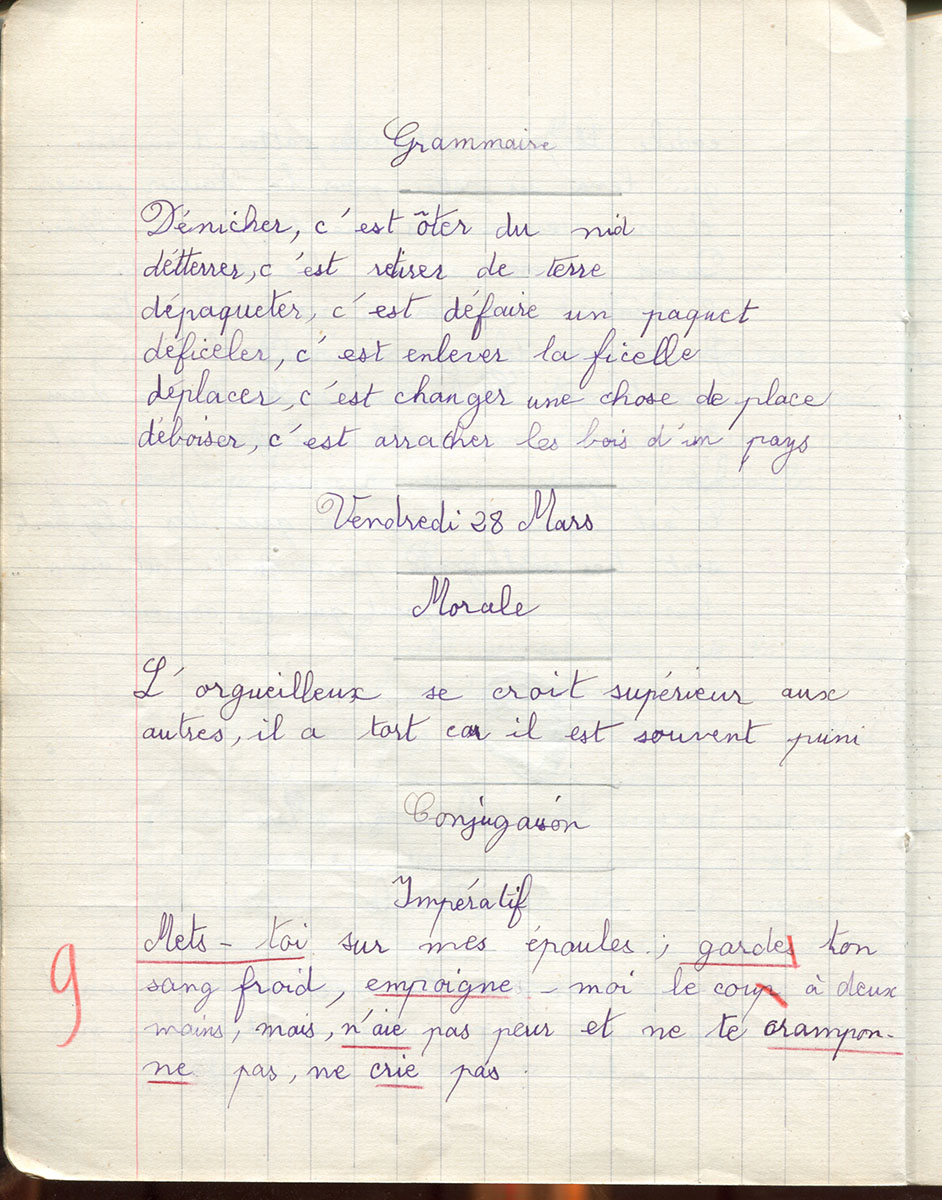 Grammaire
Dénicher, c'est ôter du nid
détterrer, c'est retirer de terre
dépaqueter, c'est défaire un paquet
déficeler, c'est enlever la ficelle
déplacer, c'est changer une chose de place
déboiser, c'est arracher les bois d'un pays
Vendredi 28 Mars
Morale
L'orgueilleux se croit supérieur aux
autres, il a tort car il est souvent puni
Conjugaison
Impératif
Mets-toi sur mes épaules ; gardes ton
sang froid, empoigne-moi le coup à deux
mains, mais, n'aie pas peur et ne te crampon-
ne pas, ne crie pas.
9